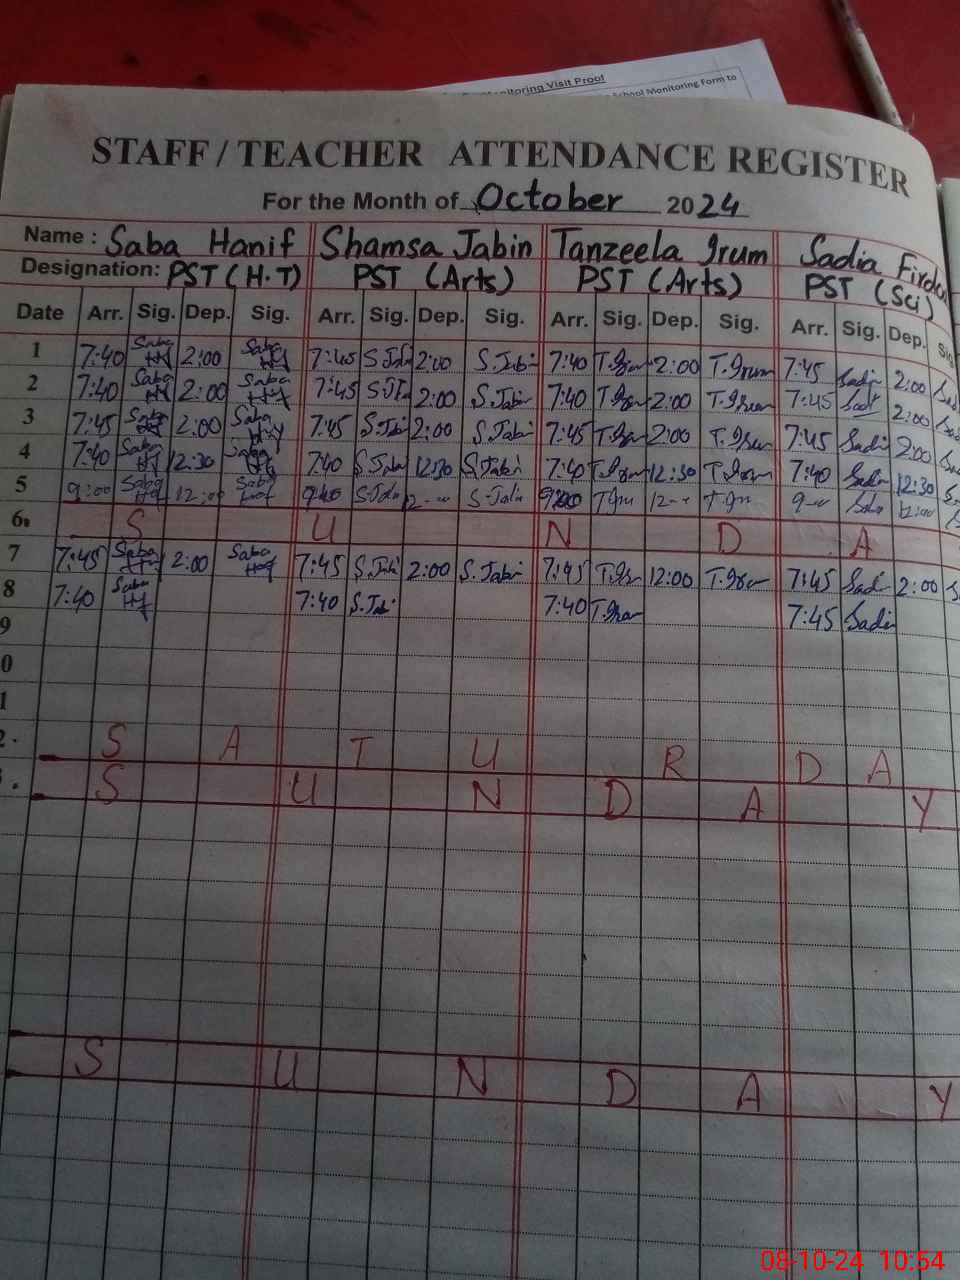 Monitoring Visit Proof
School Monitoring Form to
STAFF / TEACHER ATTENDANCE REGISTER
For the Month of October 2024
Name : Saba Hanif Shamsa Jabin Tanzeela Irum Sadia Firdou
Designation: PST (H.T) PST (Arts) PST (Arts) PST (Sci)
Date Arr. Sig. Dep. Sig. Arr. Sig. Dep. Sig. Arr. Sig. Dep. Sig. Arr. Sig. Dep. Sig
1 7:40 Saba 2:00 Saba 7:45 S.Jabi 2:00 S.Jabi 7:40 T.Irum 2:00 T.Irum 7:45 Sadi 2:00 Sad
2 7:40 Saba 2:00 Saba 7:45 S.Jabi 2:00 S.Jabin 7:40 T.Irum 2:00 T.Irum 7:45 Sadi 2:00 Sad
3 7:45 2:00 Saba 7:45 S.Jabi 2:00 S.Jabi 7:45 T.Irum 2:00 T.Irum 7:45 Sadi 2:00
4 7:40 Saba 12:30 Saba 7:40 S.Jabi 12:30 S.Jabi 7:40 T.Irum 12:30 T.Irum 7:40 Sadi 12:30 S
5 9:00 Saba 12:00 Saba S.Jabi S.Jabi T.Iru T.Iru 9-00 Sadi 12:00
6. S U N D A
7 7:45 Saba 2:00 Saba 7:45 S.Jabi 2:00 S.Jabi 7:45 T.Iru 12:00 T.Irum 7:45 Sadi 2:00 S
8 7:40 Saba 7:40 S.Jabi 7:40 T.Irum 7:45 Sadi
9
0
1
2. S A T U R D A
3. S U N D A Y
S U N D A Y
08-10-24 10:54